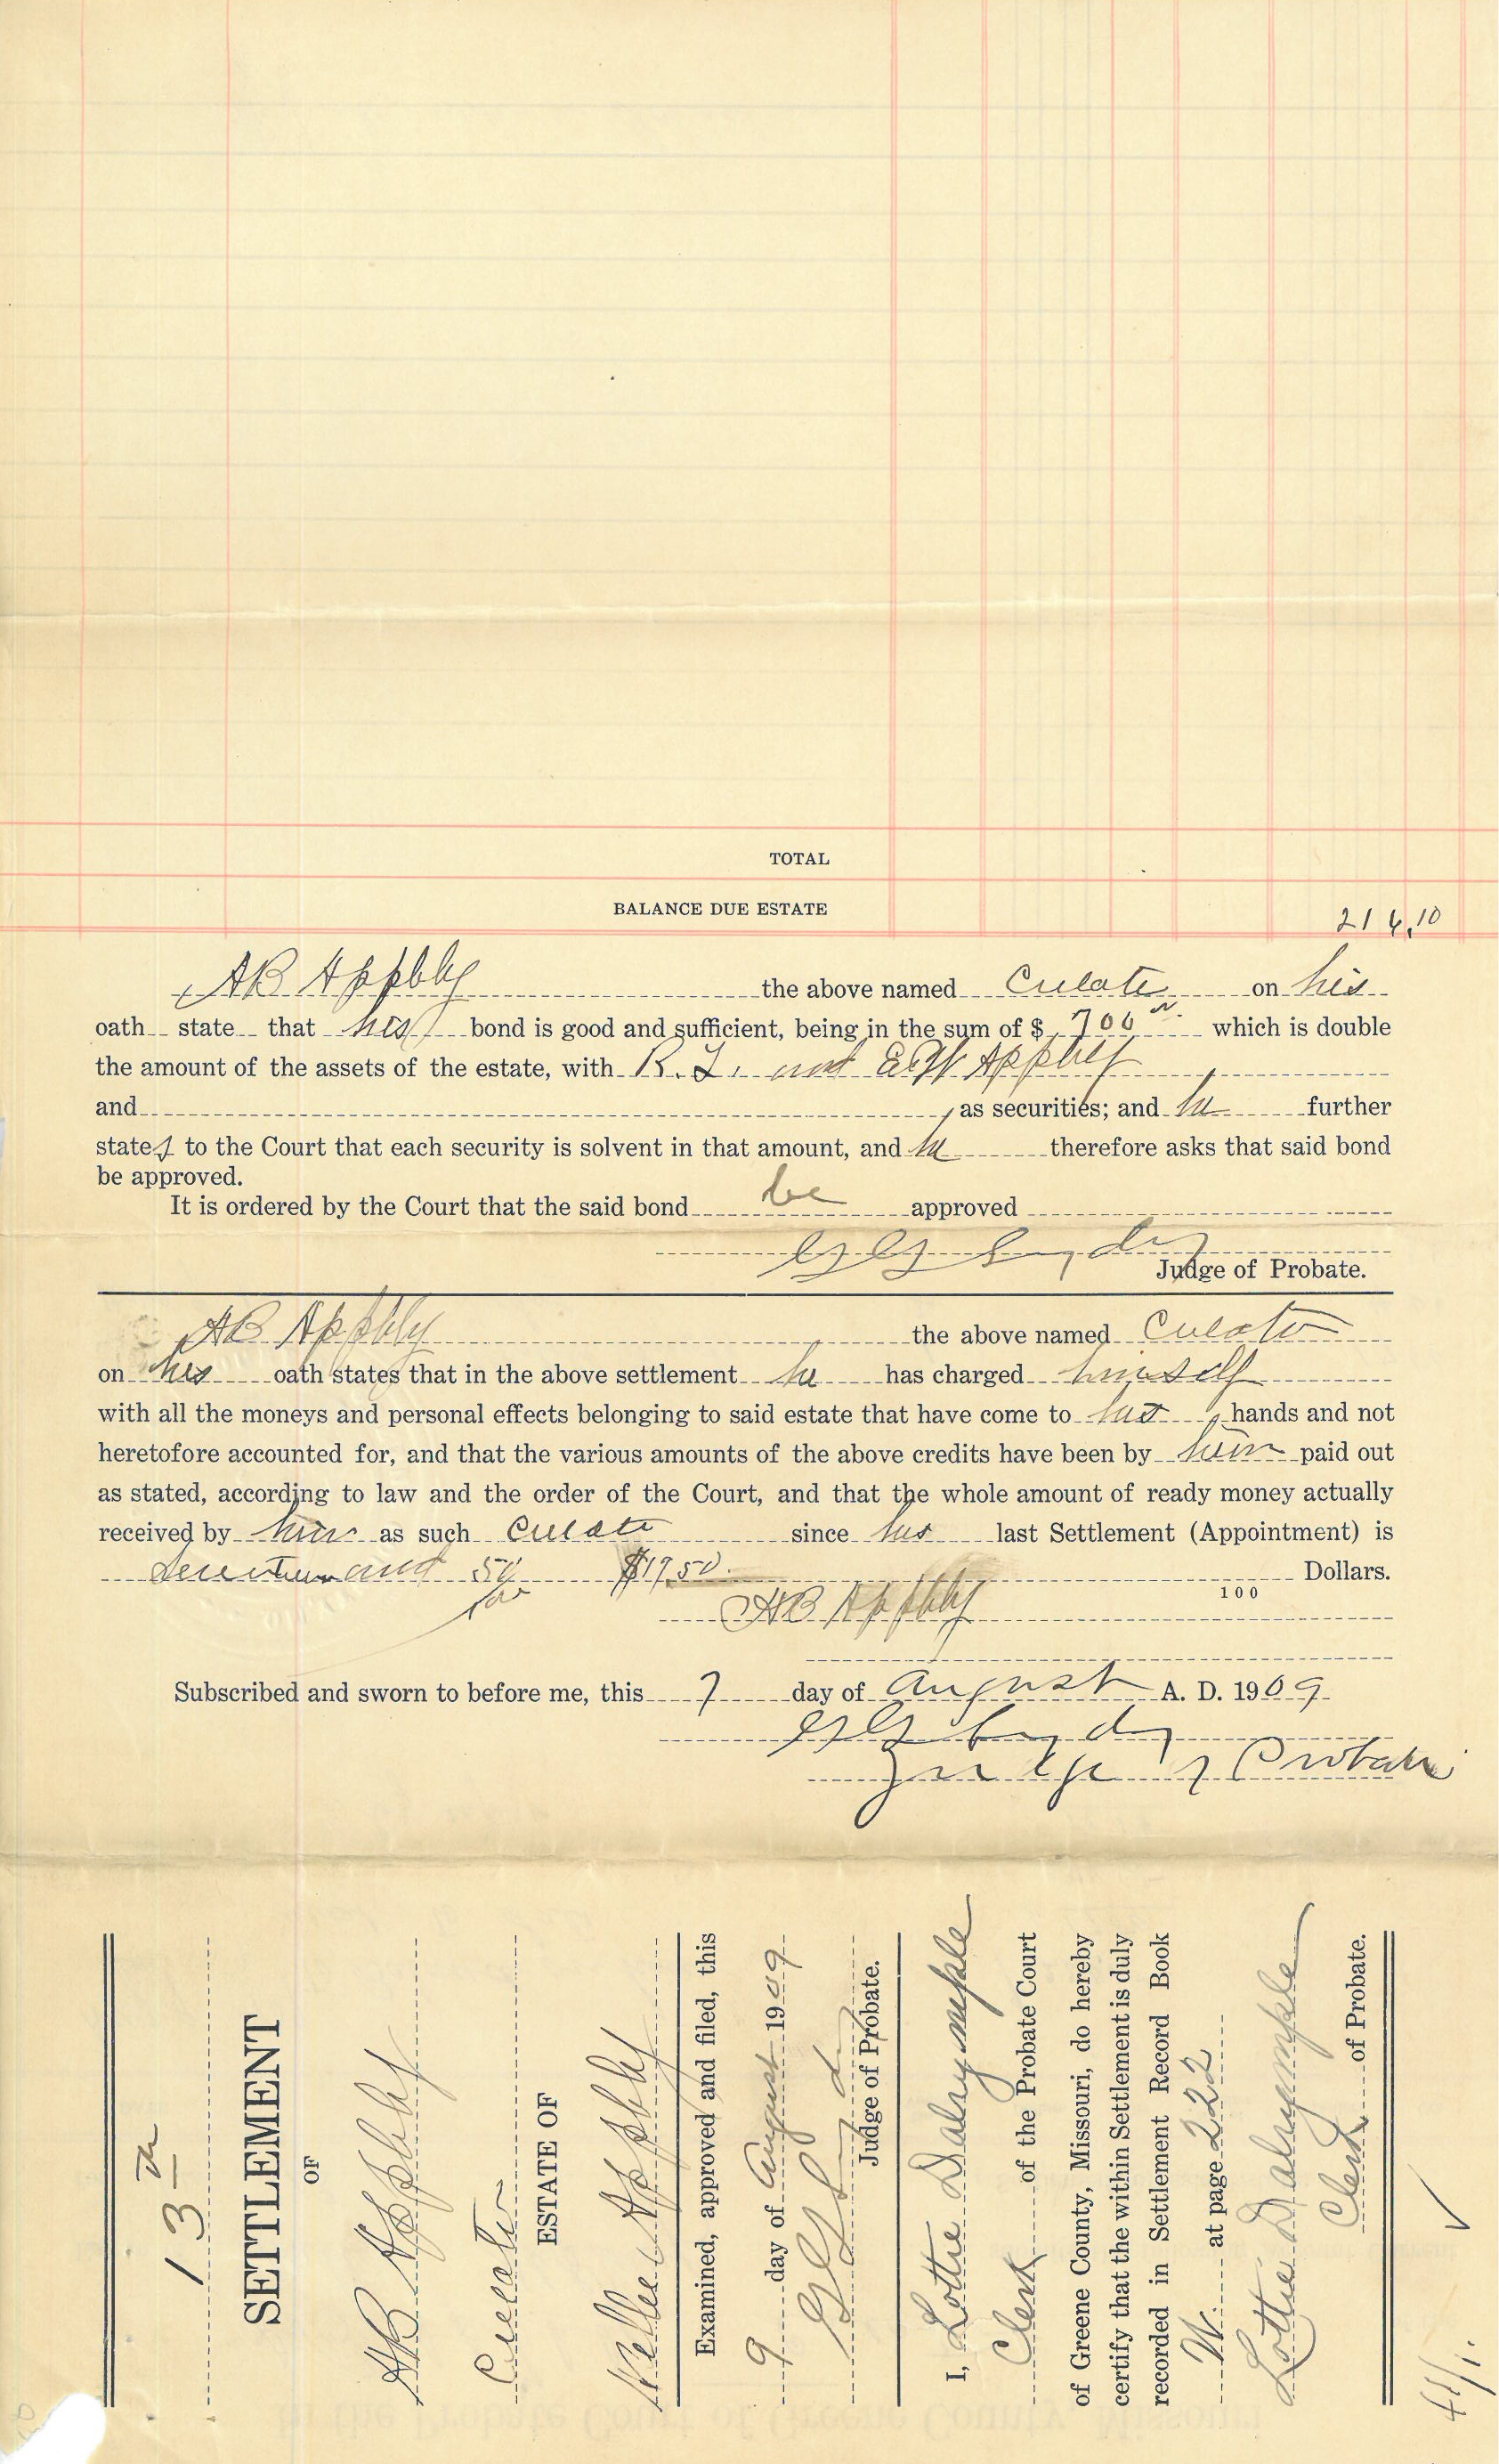 TOTAL
BALANCE DUE ESTATE
214.10
AB Appbly the above named Curator on his
oath state that his bond is good and sufficient, being in the sum of $ 700 which is double
the amount of the assets of the estate, with R.L. and E.W Appbly
and , as securities; and he further
states to the Court that each security is solvent in that amount, and he therefore asks that said bond
be approved.
It is ordered by the Court that the said bond be approved
Judge of Probate.
AB Appbly the above named Curator
on his oath states that in the above settlement he has charged himself
with all the moneys and personal effects belonging to said estate that have come to his hands and not
heretofore accounted for, and that the various amounts of the above credits have been by him paid out
as stated, according to law and the order of the Court, and that the whole amount of ready money actually
received by him as such Curator since his last Settlement (Appointment) is
Seventeen and 50/100 $17.50 Dollars.
100
AB Appbly
Subscribed and sworn to before me, this 7 day of August A. D. 1909
Judge of Probate
13
SETTLEMENT
OF
AB Appbly
Curator
ESTATE OF
Nellie Appbly
Examined, approved and filed, this
9 day of August 1909
Judge of Probate.
I, Lottie Dalrymple
Clerk of the Probate Court
of Greene County, Missouri, do hereby
certify that the within Settlement is duly
recorded in Settlement Record Book
W. at page 222
Lottie Dalrymple
Clerk of Probate.